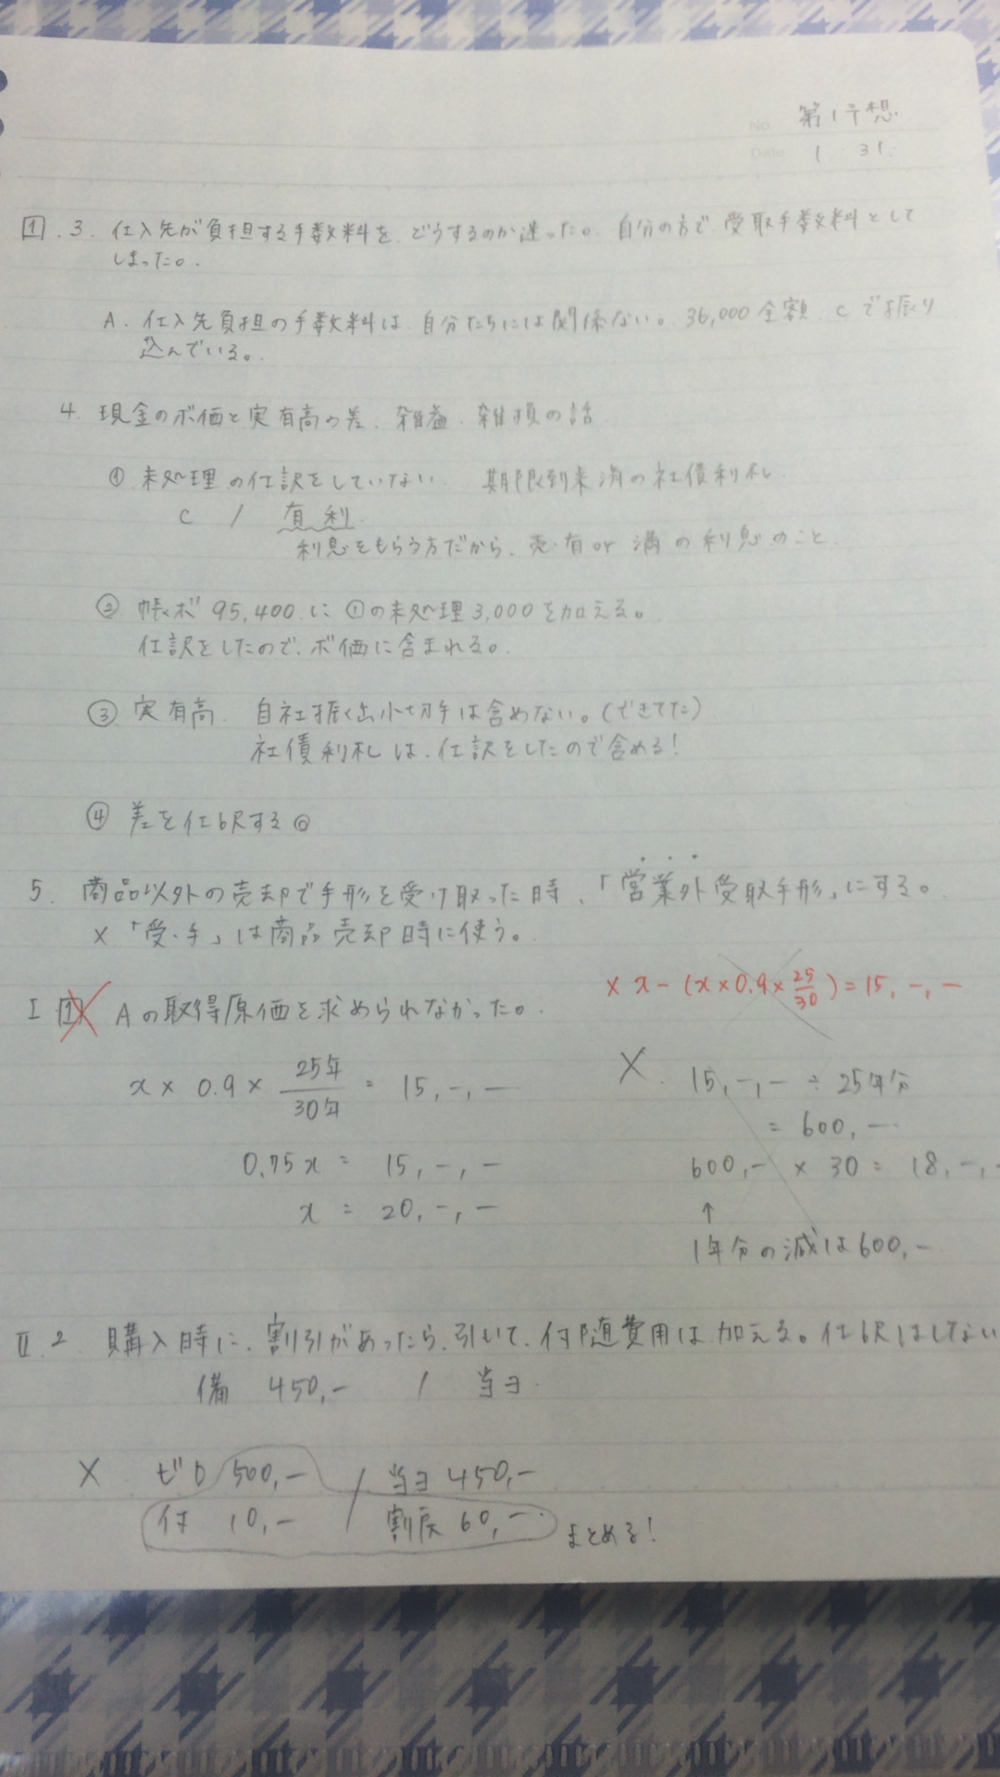 No. 第1予想
Date 1 31.
1 . 3. 仕入先が負担する手数料を、どうするのか迷った。自分の方で受取手数料として
しまった。
A. 仕入先負担の手数料は自分たちには関係ない。36,000全額 Cで振り
込んでいる。
4. 現金のボ価と実有高の差、雑益・雑損の話
① 未処理の仕訳をしていない 期限到来済の社債利札
C / 有利
利息をもらう方だから、売・有or満の利息のこと
② 帳ボ 95,400に①の未処理3,000を加える。
仕訳をしたので、ボ価に含まれる。
③ 実有高 自社振出小切手は含めない。(できてた)
社債利札は、仕訳をしたので含める!
④ 差を仕訳する
5. 商品以外の売却で手形を受け取った時、「営業外受取手形」にする。
× 「受・手」は商品売却時に使う。
× x − (x×0.9×25/30) = 15,-,-
I 1 Aの取得原価を求められなかった。
x × 0.9 × 25年/30年 = 15,-,-
0.75x = 15,-,-
x = 20,-,-
× 15,-,- ÷ 25年分
= 600,-
600,- × 30 = 18,-,-
↑
1年分の減は600,-
II.2 購入時に、割引があったら、引いて、付随費用は加える。仕訳はしない
備 450,- / 当ヨ
× ビロ 500,- / 当ヨ 450,-
付 10,- 割戻 60,- まとめる!